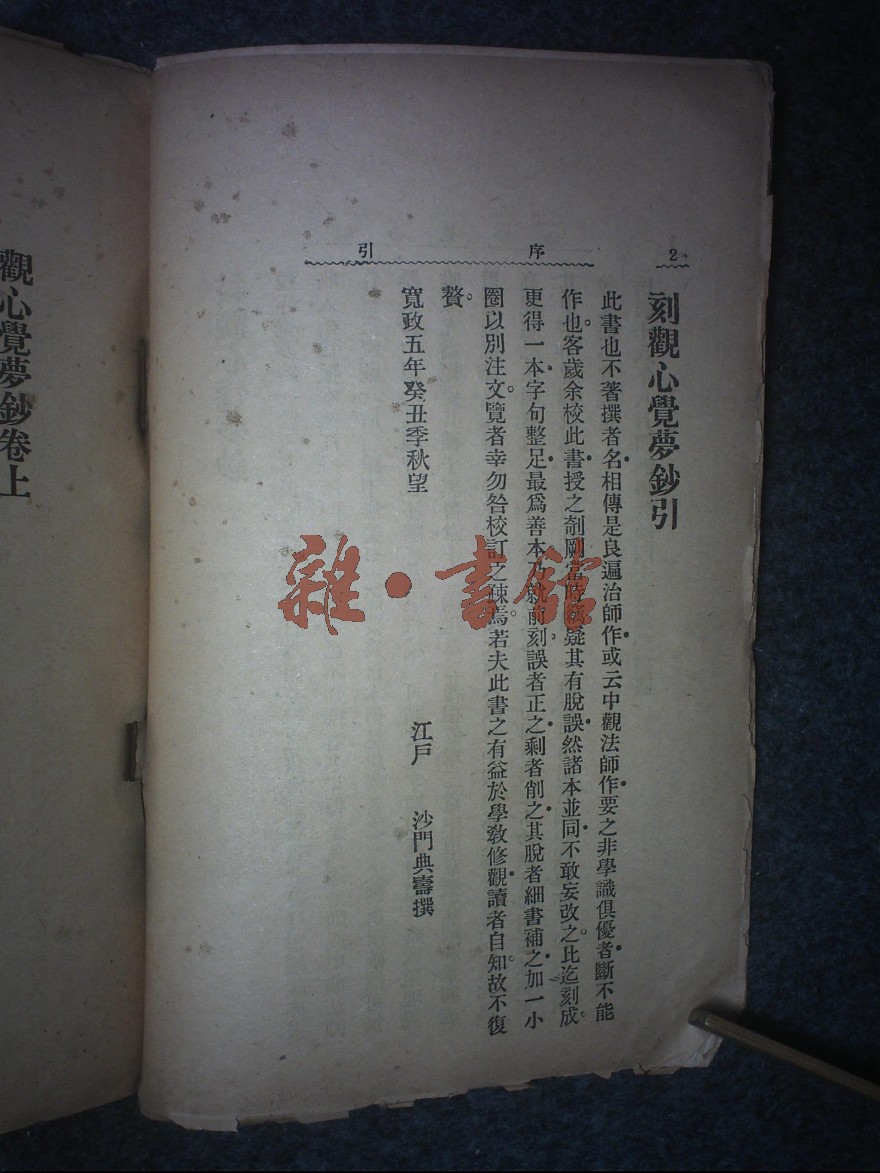 2
序引
刻觀心覺夢鈔引
此書也不著撰者名•相傳是良遍治師作•或云中觀法師作•要之非學識俱優者•斷不能
作也。客歲余校此書•授之剞劂當時疑其有脫誤•然諸本並同•不敢妄改之。比迄刻成。
更得一本•字句整足•最爲善本乃就前刻。誤者正之•剩者削之•其脫者細書補之•加一小
圈以別注文。覽者幸勿咎校訂之疎焉。若夫此書之有益於學敎修觀•讀者自知。故不復
贅。
寬政五年癸丑季秋望
江戶 沙門典壽撰
觀心覺夢鈔卷上
雜•書館